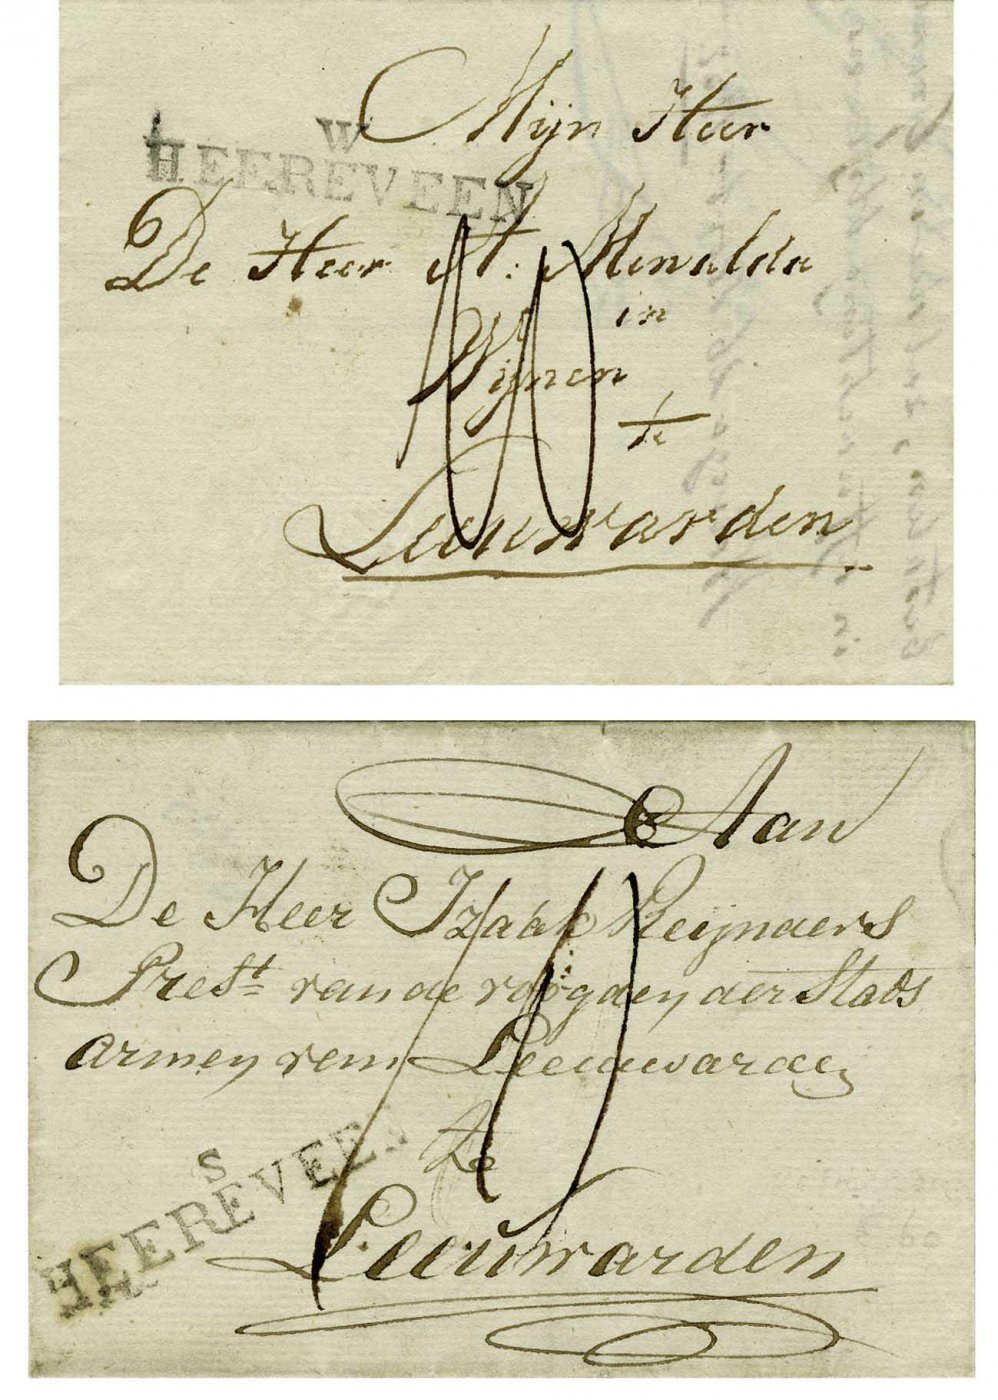 Mijn Heer
W
HEEREVEEN
De Heer A: Menalda
in
Wijnen
te
Leeuwarden
Aan
De Heer Izaäk Reijnders
Prest. van de voogden der Stads
armen van Leeuwarden
te
Leeuwarden
S
HEEREVEEN